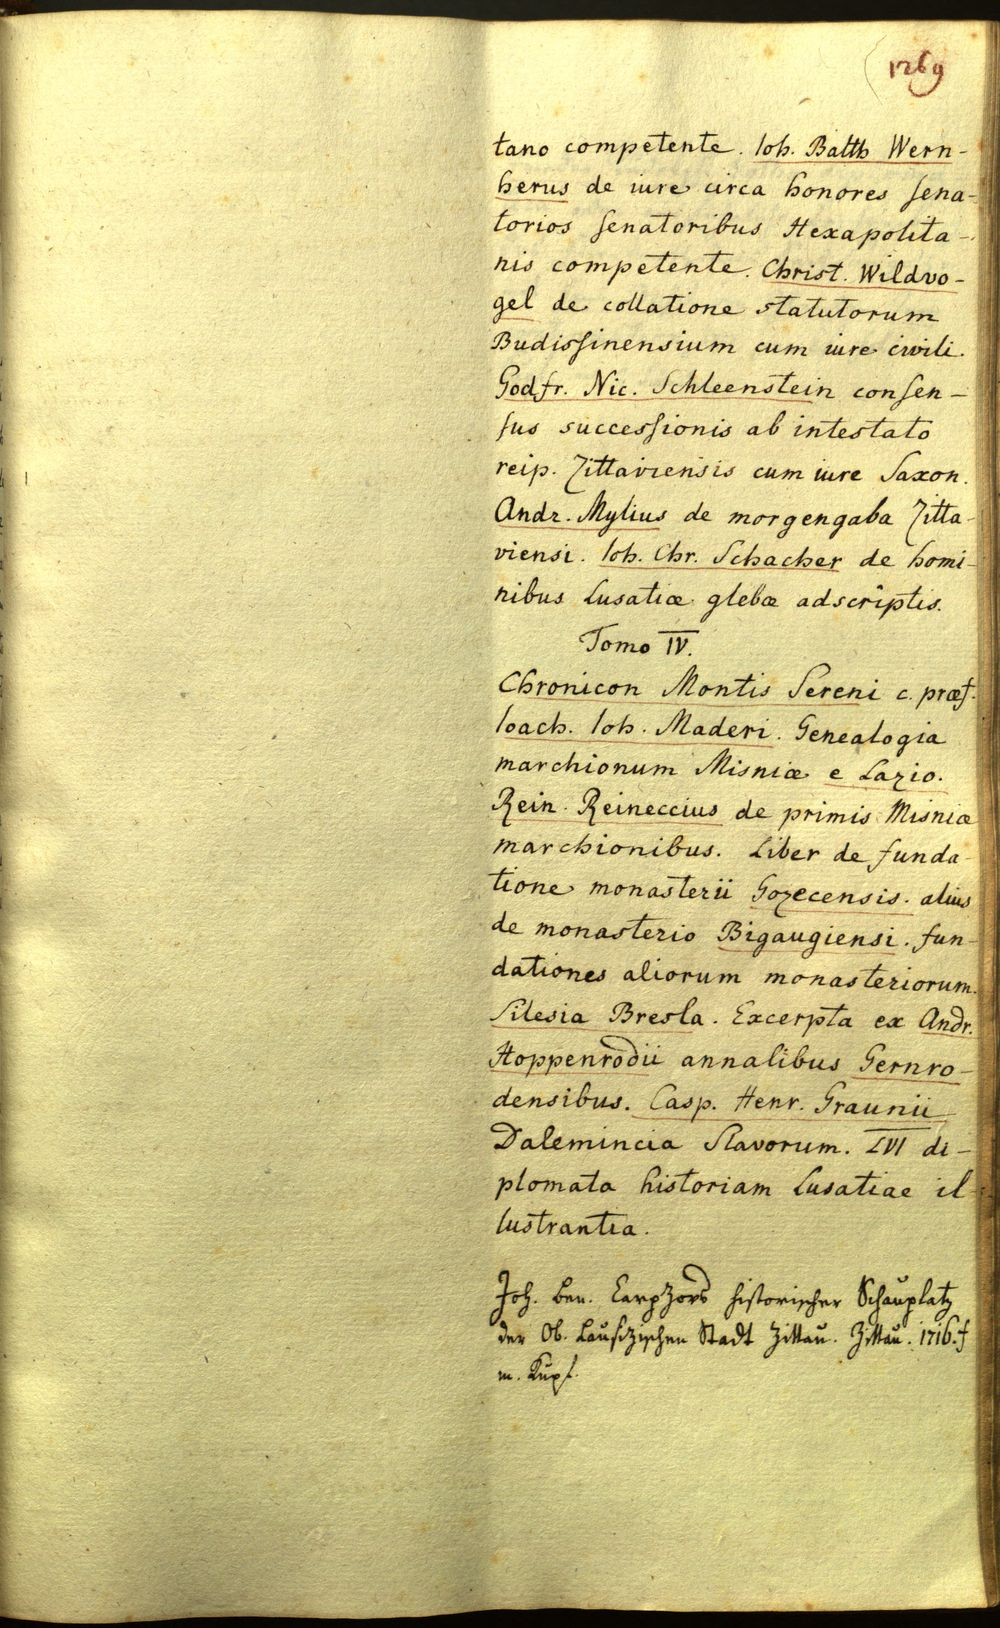 1269
tano competente. Ioh. Balth Wern-
herus de iure circa honores sena-
torios senatoribus Hexapolita-
nis competente. Christ. Wildvo-
gel de collatione statutorum
Budissinensium cum iure civili.
Godfr. Nic. Schleenstein consen-
sus successionis ab intestato
reip. Zittaviensis cum iure Saxon.
Andr. Mylius de morgengaba Zitta-
viensi. Ioh. Chr. Schacher de homi-
nibus Lusatiæ glebæ adscriptis.
Tomo IV.
Chronicon Montis Sereni c. præf.
Ioach. Ioh. Maderi. Genealogia
marchionum Misniæ e Lazio.
Rein. Reineccius de primis Misniæ
marchionibus. Liber de funda-
tione monasterii Gozecensis. alius
de monasterio Bigaugiensi. fun-
dationes aliorum monasteriorum.
Silesia Bresla. Excerpta ex Andr.
Hoppenrodii annalibus Gernro-
densibus. Casp. Henr. Graunii
Dalemincia Slavorum. LVI di-
plomata historiam Lusatiae il-
lustrantia.
Joh. Ben. Carpzovs historischer Schauplatz
der Ob. Lausizischen Stadt Zittau. Zittau. 1716. f
m. Kupf.